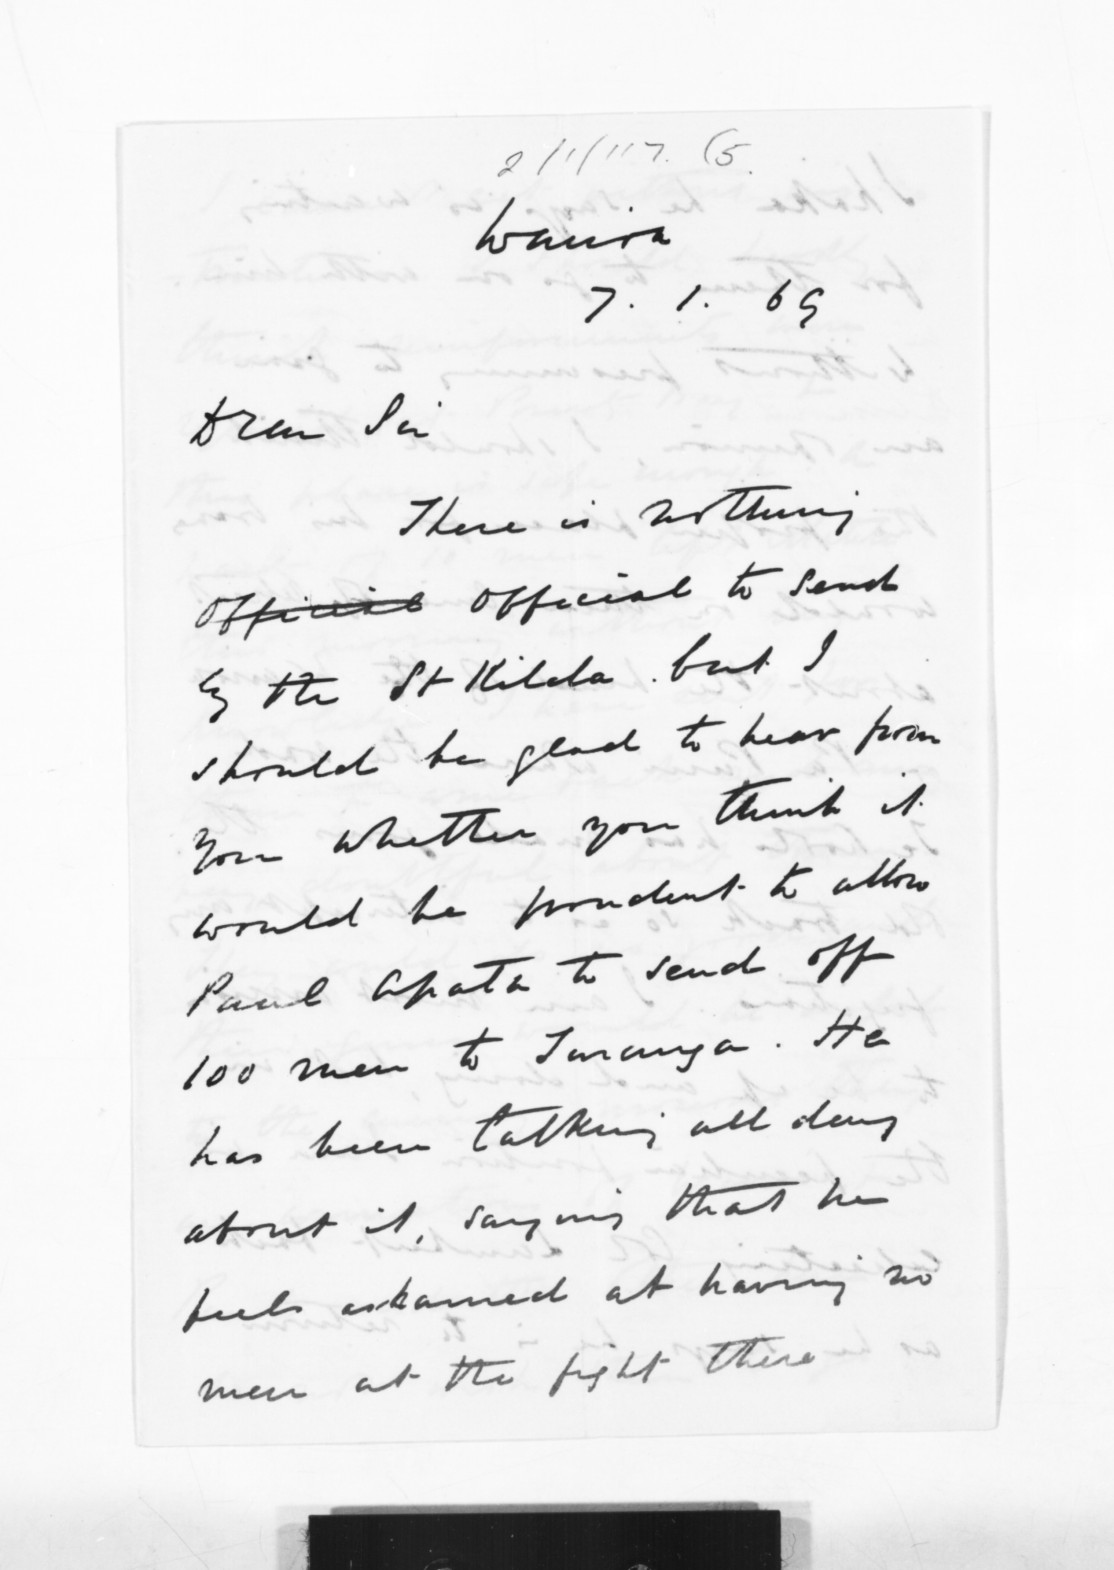 2/1/117. (5.
Wairoa
7. 1. 69
Dear Sir
There is nothing
official official to send
by the St Kilda. but I
should be glad to hear from
you whether you think it
would be prudent to allow
Paul Apata to send off
100 men to Turanga. He
has been talking all day
about it, saying that he
feels ashamed at having no
men at the fight there